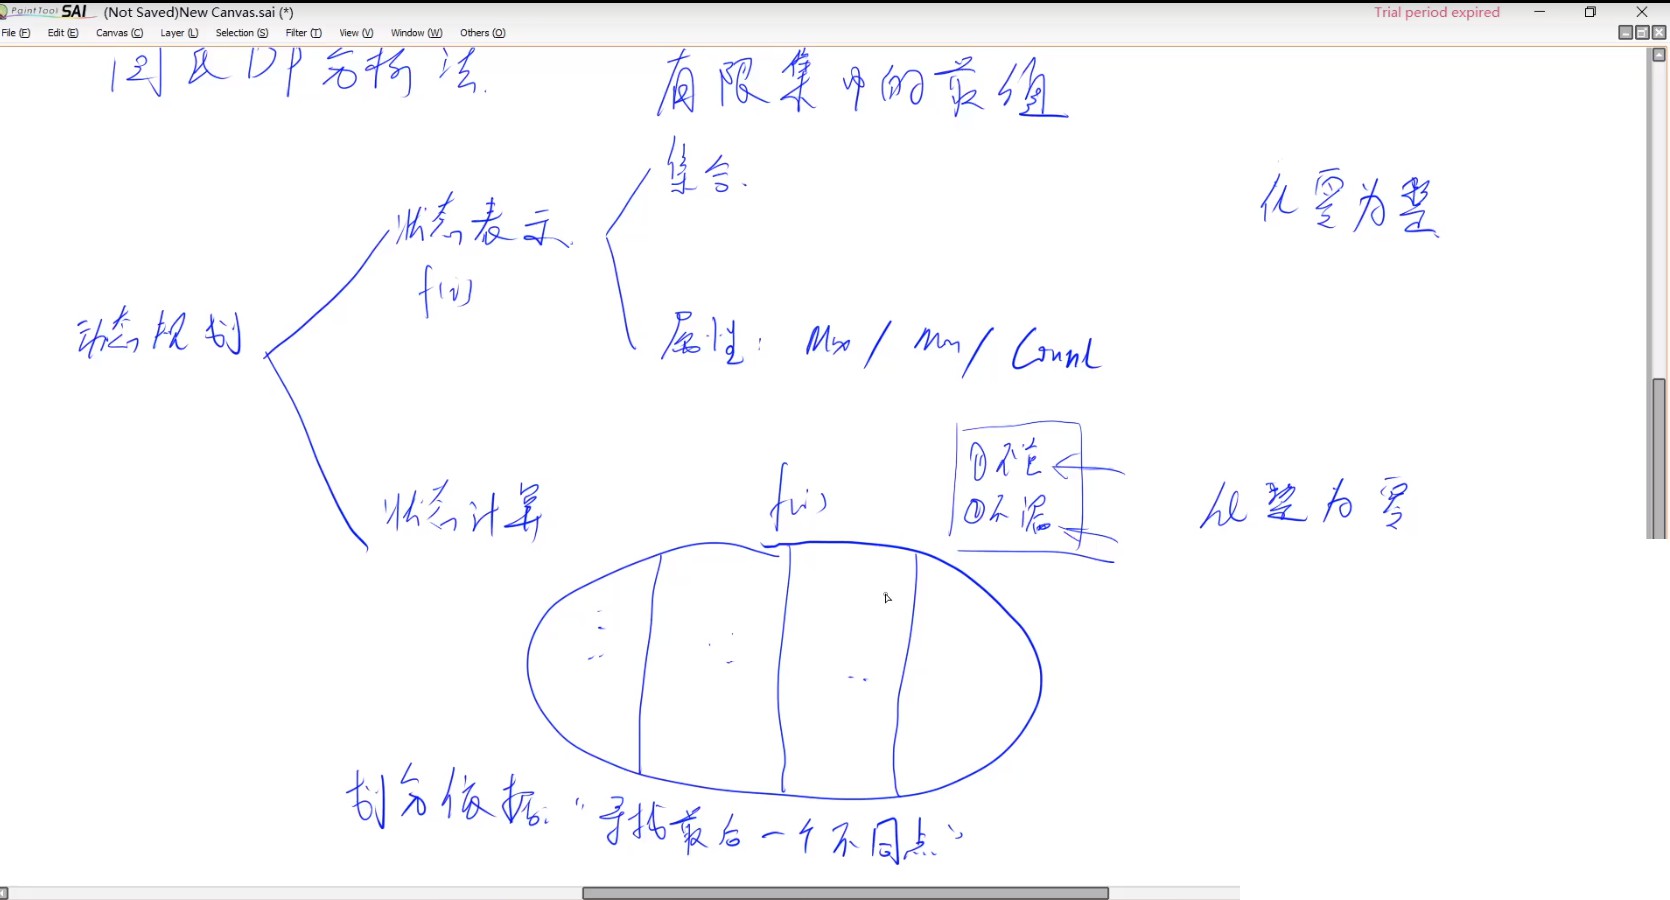 PaintTool SAI (Not Saved)New Canvas.sai (*) Trial period expired
File (F) Edit (E) Canvas (C) Layer (L) Selection (S) Filter (T) View (V) Window (W) Others (O)
闫氏DP分析法. 有限集中的最值
集合.
化零为整
状态表示
f(i)
动态规划
属性: Max / Min / Count
①不重
②不漏
f(i)
状态计算
化整为零
划分依据: “寻找最后一个不同点”